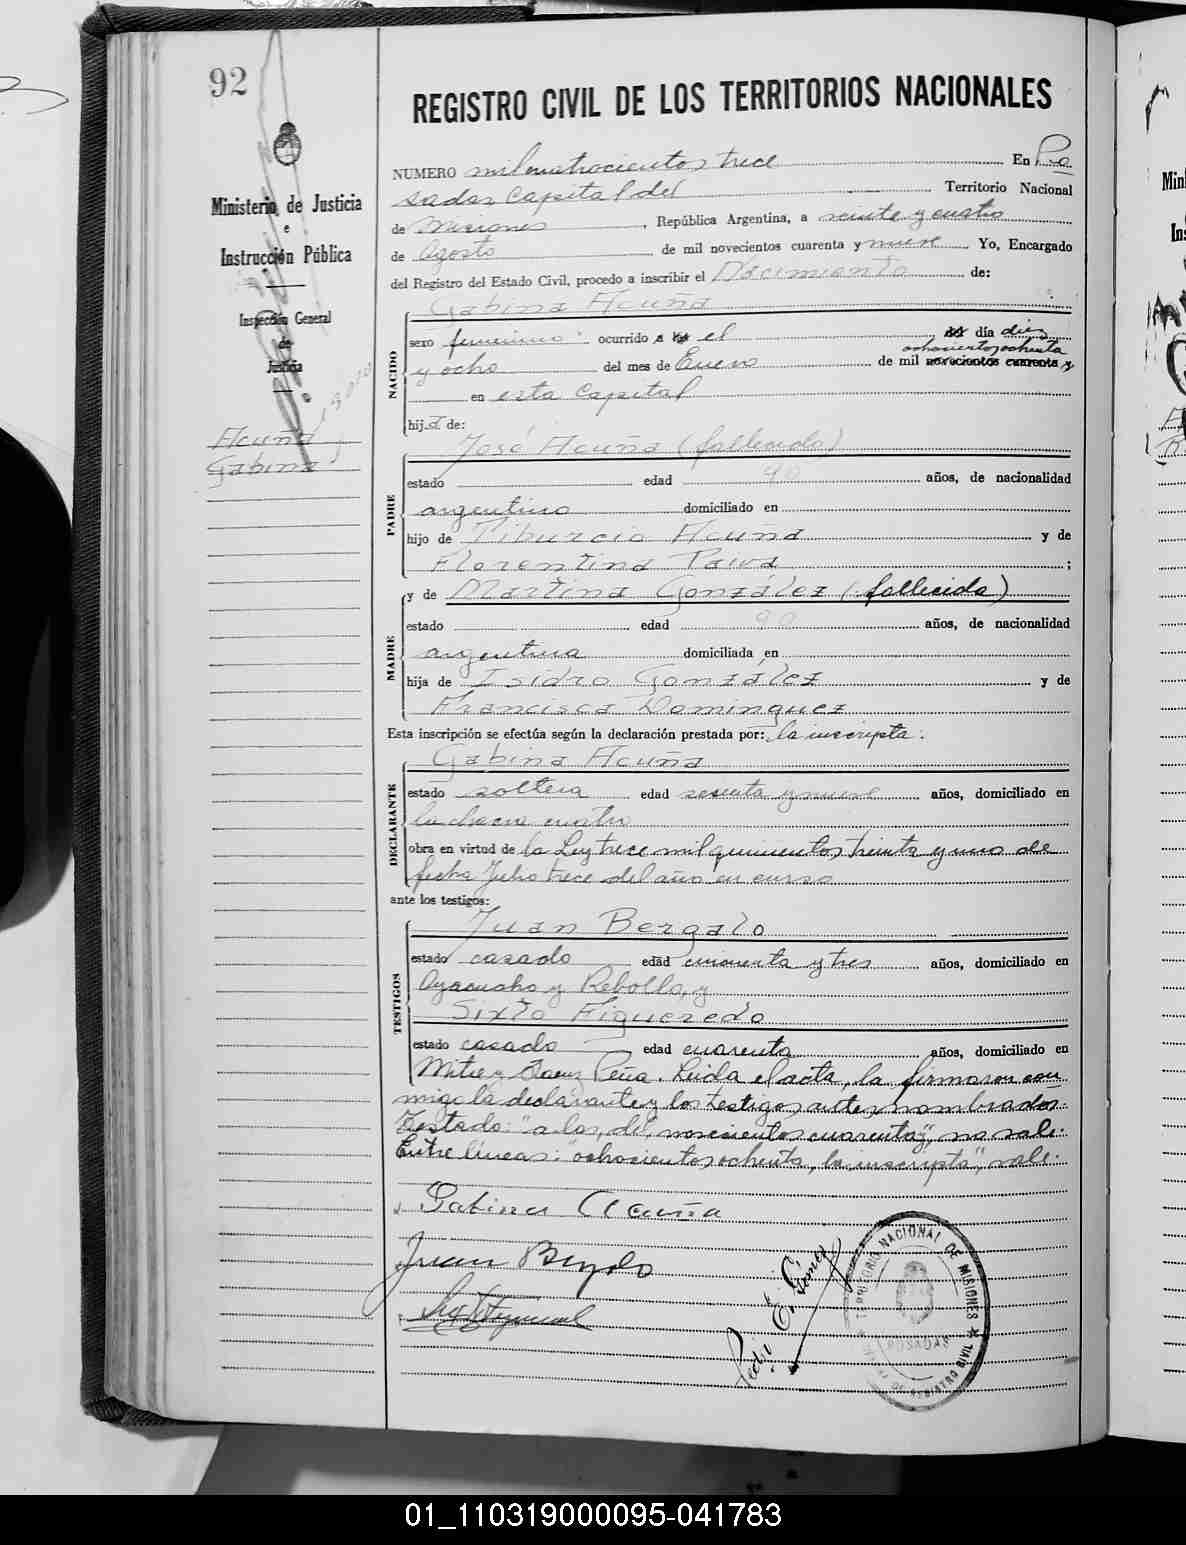 92
REGISTRO CIVIL DE LOS TERRITORIOS NACIONALES
Ministerio de Justicia
e
Instrucción Pública
Inspección General
de
Justicia
Acuña
Gabina
NUMERO mil cuatrocientos trece En Po
sadas Capital del Territorio Nacional
de Misiones, República Argentina, a veinte y cuatro
de Agosto de mil novecientos cuarenta y nueve Yo, Encargado
del Registro del Estado Civil, procedo a inscribir el Nacimiento de:
Gabina Acuña
NACIDO
sexo femenino ocurrido a las el del día diez
ochocientos ochenta
y ocho del mes de Enero de mil novecientos cuarenta y
en esta Capital
hija de:
José Acuña (fallecido)
PADRE
estado edad años, de nacionalidad
argentino domiciliado en
hijo de Tiburcio Acuña y de
Florentina Paiva;
y de Martina González (fallecida)
MADRE
estado edad años, de nacionalidad
argentina domiciliada en
hija de Isidro González y de
Francisca Domínguez
Esta inscripción se efectúa según la declaración prestada por: la inscripta.
Gabina Acuña
DECLARANTE
estado soltera edad sesenta y nueve años, domiciliado en
la chacra cuatro
obra en virtud de la Ley trece mil quinientos treinta y uno de
fecha Julio trece del año en curso
ante los testigos:
Juan Bergalo
TESTIGOS
estado casado edad cincuenta y tres años, domiciliado en
Ayacucho y Rebollo, y
Sixto Figueredo
estado casado edad cuarenta años, domiciliado en
Mitre y Saenz Peña. Leida el acta, la firmaron con
migo la declarante y los testigos antes nombrados.
Testado: "a las, del, novecientos cuarenta y", no vale.
Entre líneas: "ochocientos ochenta, la inscripta", vale.
Gabina Acuña
Juan Bergalo
Pedro E. Gómez
TERRITORIO NACIONAL DE MISIONES
POSADAS
DE REGISTRO CIVIL
01_110319000095-041783